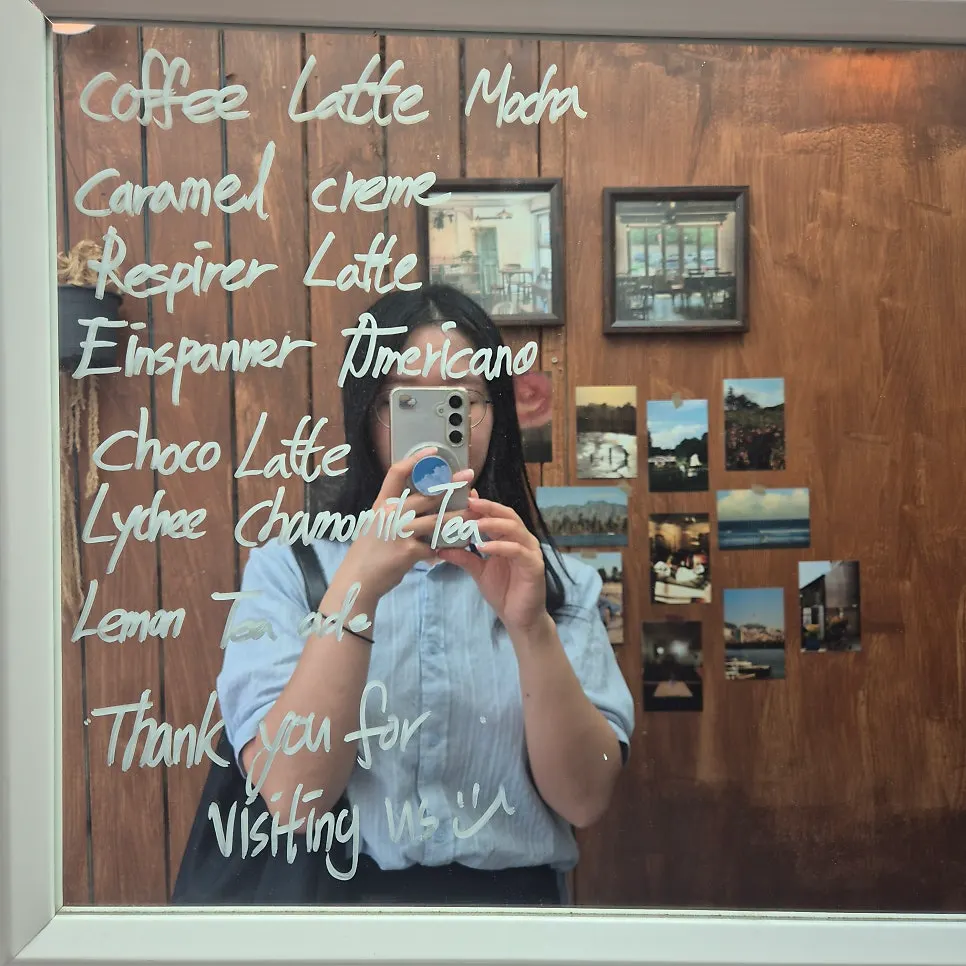 Coffee Latte Mocha
Caramel creme
Respirer Latte
Einspanner Americano
choco Latte
Lychee chamomile Tea
Lemon Tea ade
"Thank you for
visiting us